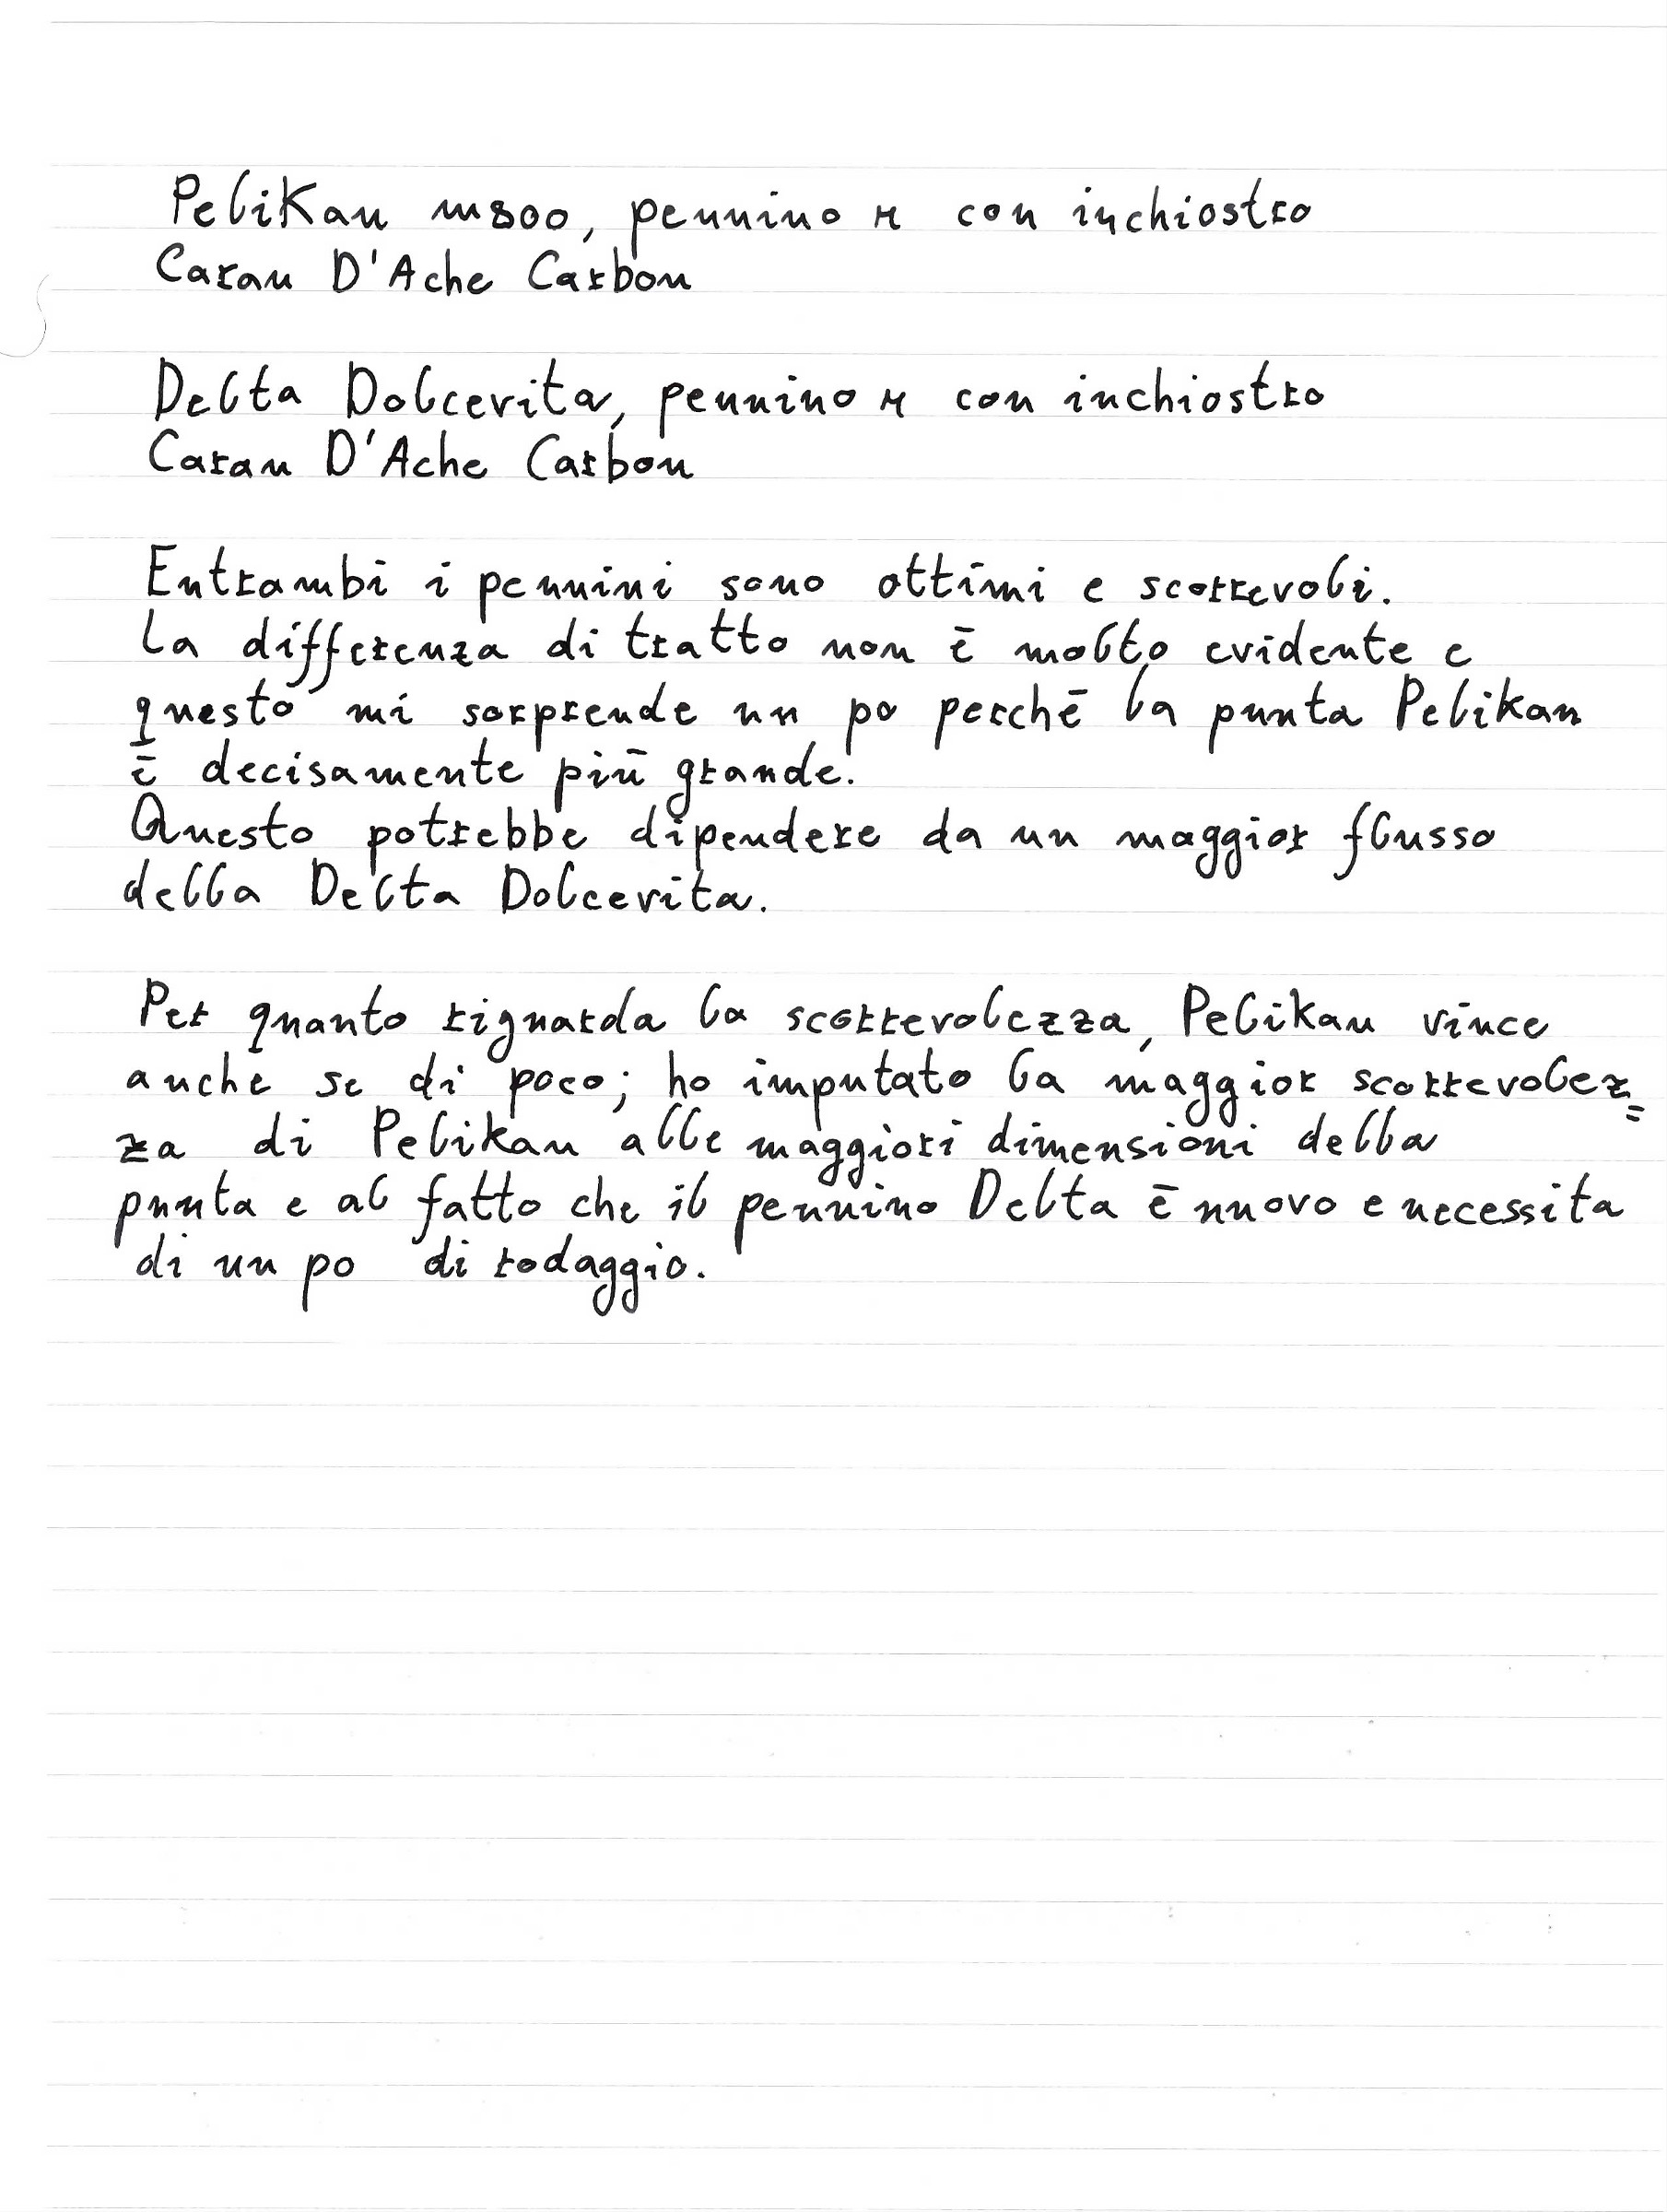 Pelikan m800, pennino M con inchiostro
Caran D'Ache Carbon
Delta Dolcevita, pennino M con inchiostro
Caran D'Ache Carbon
Entrambi i pennini sono ottimi e scorrevoli.
La differenza di tratto non è molto evidente e
questo mi sorprende un po perchè la punta Pelikan
è decisamente più grande.
Questo potrebbe dipendere da un maggior flusso
della Delta Dolcevita.
Per quanto riguarda la scorrevolezza, Pelikan vince
anche se di poco; ho imputato la maggior scorrevolez=
za di Pelikan alle maggiori dimensioni della
punta e al fatto che il pennino Delta è nuovo e necessita
di un po di rodaggio.